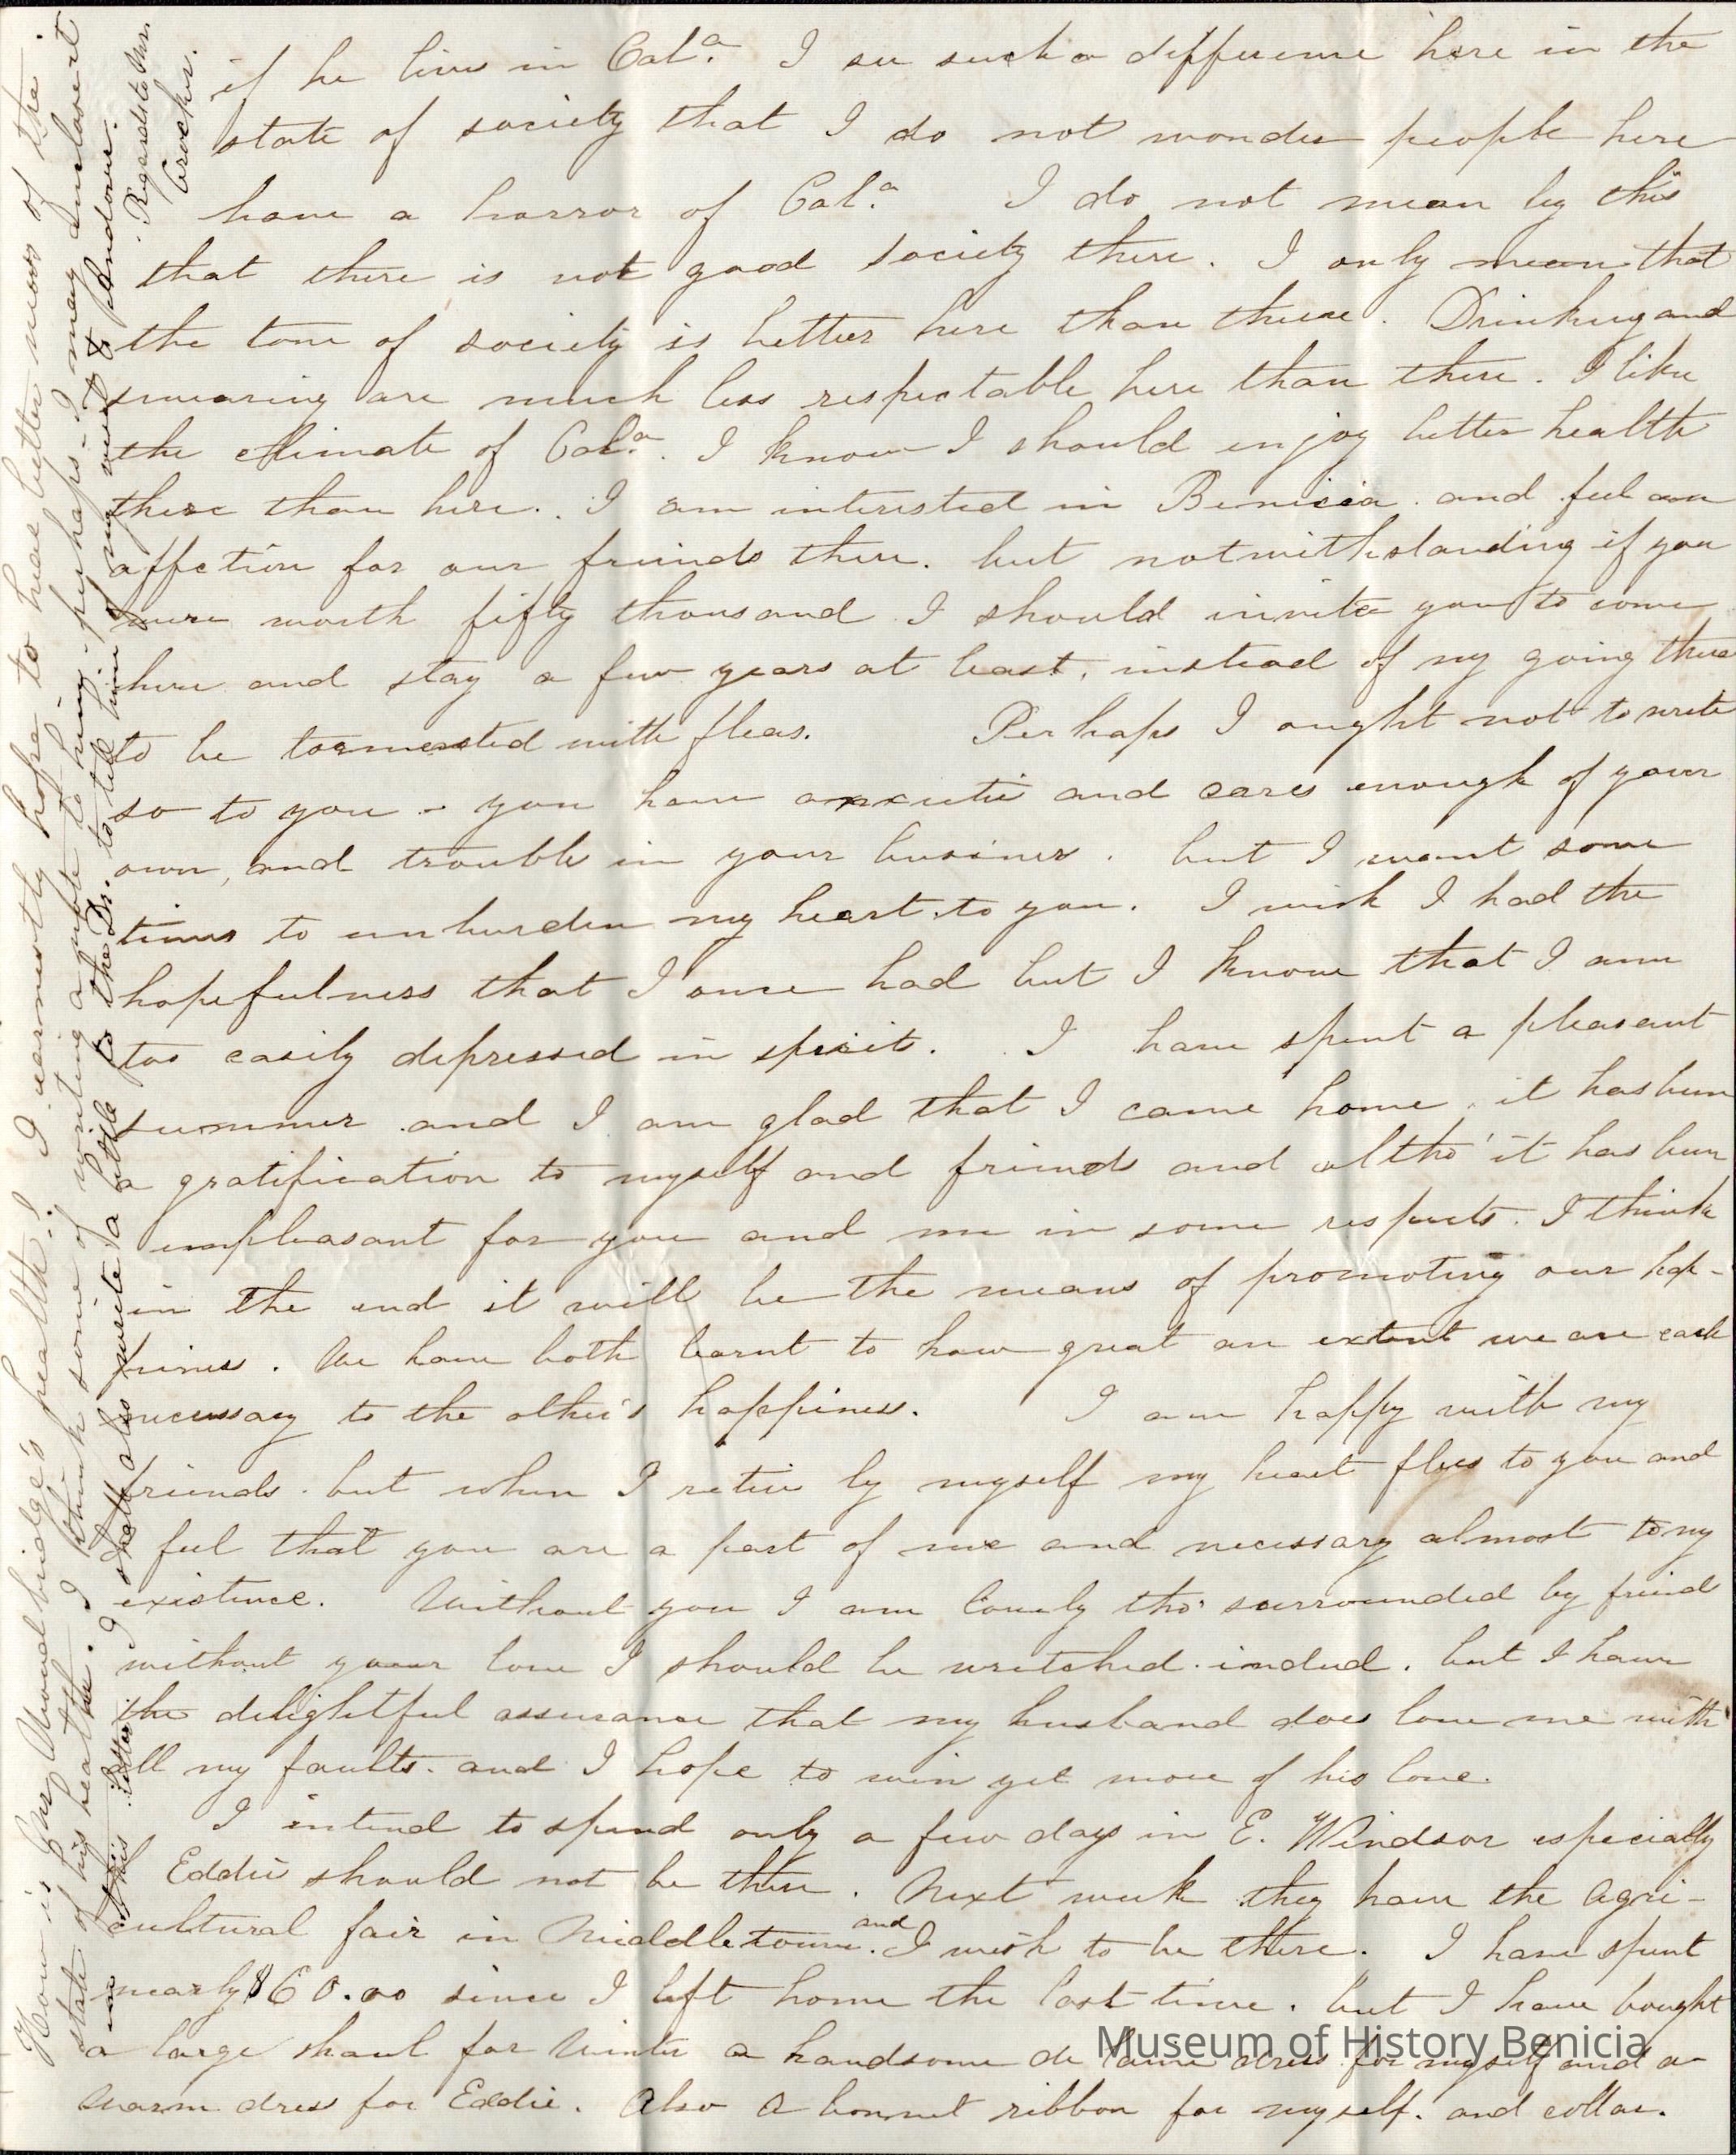 if he lives in Cala. I see such a difference here in the
state of society that I do not wonder people here
have a horror of Cala. I do not mean by this
that there is not good society there. I only mean that
the tone of society is better here than there. Drinking and
swearing are much less respectable here than there. I like
the climate of Cala. I know I should enjoy better health
there than here. I am interested in Benicia. and feel an
affection for our friends there. but notwithstanding if you
were worth fifty thousand I should invite you to come
here and stay a few years at least, instead of my going there
to be tormented with fleas. Perhaps I ought not to write
so to you - you have anxietie and cares enough of your
own, and trouble in your business. but I want some
times to unburden my heart to you. I wish I had the
hopefulness that I once had but I know that I am
too easily depressed in spirit. I have spent a pleasant
summer and I am glad that I came home. it has been
a gratification to myself and friends and altho' it has been
unpleasant for you and me in some respects. I think
in the end it will be the means of promoting our hap-
piness. We have both learnt to how great an extent we are each
necessary to the other's happiness. I am happy with my
friends. but when I retire by myself my heart flyes to you and
I feel that you are a part of me and necessary almost to my
existence. Without you I am lonely tho' surrounded by friend
without your love I should be wretched indeed. but I have
the delightful assurance that my husband does love me with
all my faults. and I hope to win yet more of his love.
I intend to spend only a few days in E. Windsor especially
Eddie should not be there. Next week they have the Agri-
cultural fair in Middletown. and I wish to be there. I have spent
nearly $60.00 since I left home the last time. but I have bought
a large shawl for Winter a handsome de laine dress for myself and a
warm dress for Eddie. Also a bonnet ribbon for myself. and collar.
How is Mr Woodbridge's health? I earnestly hope to hear better news of the
state of his health. I think some of writing a note to him - perhaps I may enclose it
in this letter. I shall also write a little to the Dr. to tell him of my
Regards to Mr.
Crocker.
Museum of History Benicia